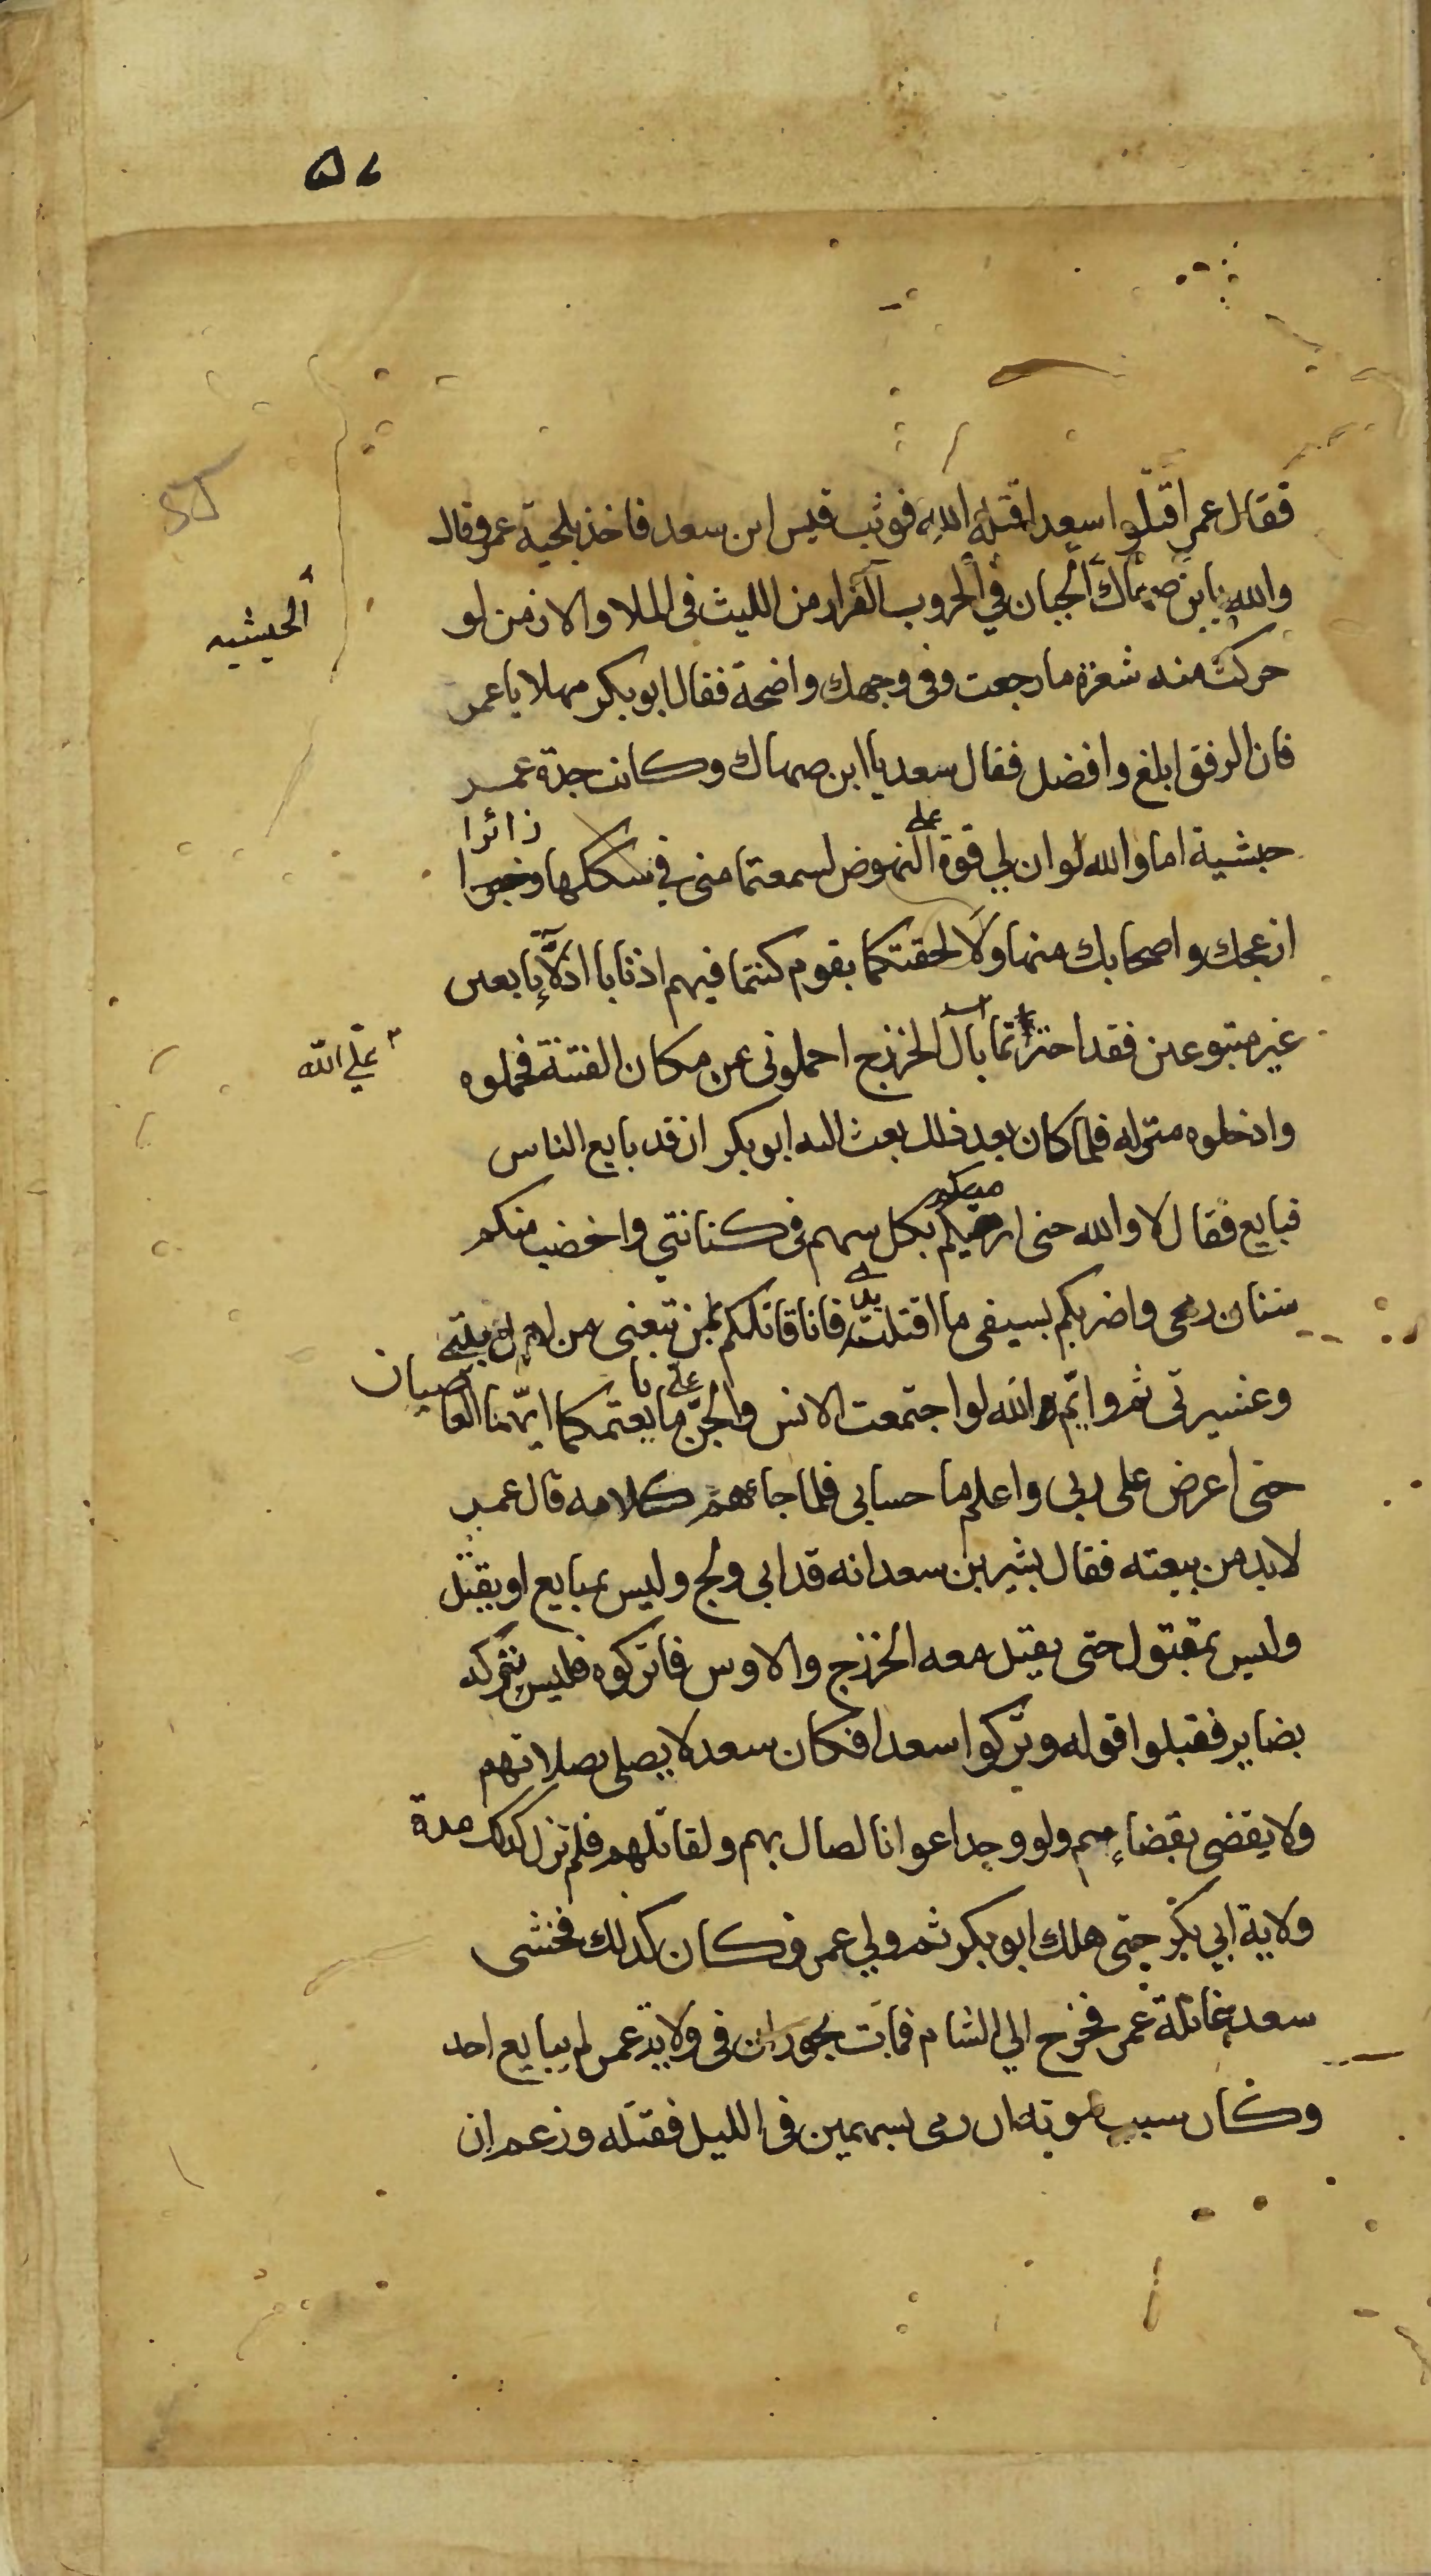 ٥٧
فقال عمر اقتلوا سعدا قتله الله فوثب قيس ابن سعد فاخذ بلحية عمر وقال
والله يا ابن صهاك الجبان في الحروب الفرار من الليث في الملا والامن لو
الحبشيه
حركت منه شعرة ما رجعت وفي وجهك واضحة فقال ابو بكر مهلا يا عمر
فان الرفق ابلغ وافضل فقال سعد يا ابن صهاك وكانت جدة عمر
حبشية اما والله لو ان لي قوة على النهوض لسمعتما مني في سككها زائرا
ازعجك واصحابك منها ولالحقتكما بقوم كنتما فيهم اذنابا اذلا تابعين
غير متبوعين فقد اجترأتما يا آل الخزرج احملوني عن مكان الفتنة فحملوه
على الله
وادخلوه منزله فلما كان بعد ذلك بعث اليه ابو بكر ان قد بايع الناس
فبايع فقال لا والله حتى ارميكم بكل سهم في كنانتي واخضب منكم
سنان رمحي واضربكم بسيفي ما اقتلت يدي فانا قاتلكم بمن تبعني من اهل بيتي
وعشيرتي ثم وايم الله لو اجتمعت الانس والجن على ما بايعتمكما ايهما العاصيان
حتى اعرض على ربي واعلم ما حسابي فلما جاءهم كلامه قال عمر
لا بد من بيعته فقال بشير بن سعد انه قد ابى ولج وليس بمبايع او يقتل
وليس بمقتول حتى يقتل معه الخزرج والاوس فاتركوه فليس تركه
بضاير فقبلوا قوله وتركوا سعدا فكان سعد لا يصلي بصلاتهم
ولا يقضي بقضاءهم ولو وجد اعوانا لصال بهم ولقاتلهم فلم تزل كذلك مدة
ولاية ابي بكر حتى هلك ابو بكر ثم ولي عمر وكان كذلك فخشى
سعد غائلة عمر فخرج الي الشام فمات بحوران في ولاية عمر لم يبايع احد
وكان سبب موته ان رمى بسهمين في الليل فقتله وزعم ان